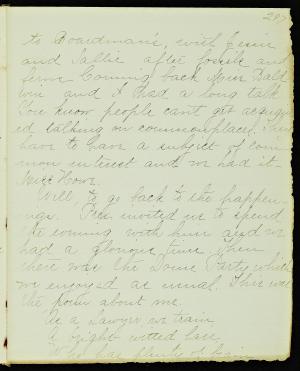 297
to Boardman's, with Jessie
and Sallie after fossils and
ferns. Coming back Miss Bald
win and I had a long talk.
You know people can't get acquaint
ed talking on commonplaces, they
have to have a subject of com
mon interest and we had it -
Miss Howe.
Well, to go back to the happen-
ings. invited us to spend
the evening with him and we
had a glorious time. Then
there was the Party which
we enjoyed as usual. This was
the poem about me.
As a Lawyer we train
A bright witted lass
Who has plenty of brain